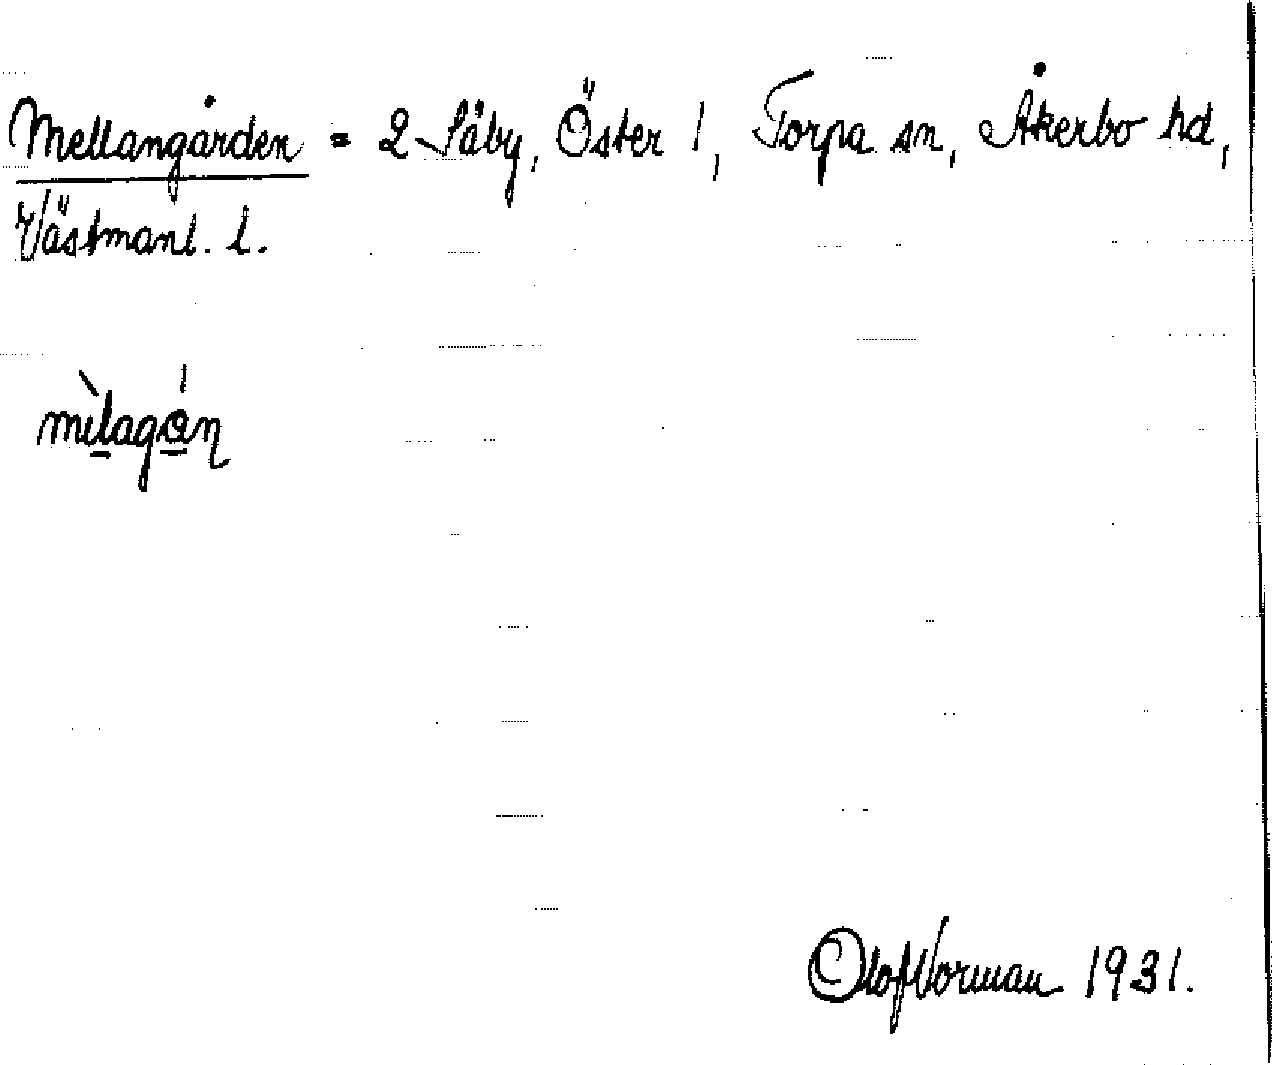 Mellangården = 2 Säby, Öster 1, Torpa sn, Åkerbo hd,
Västmanl. l.
mìlagán
Olof Norman 1931.